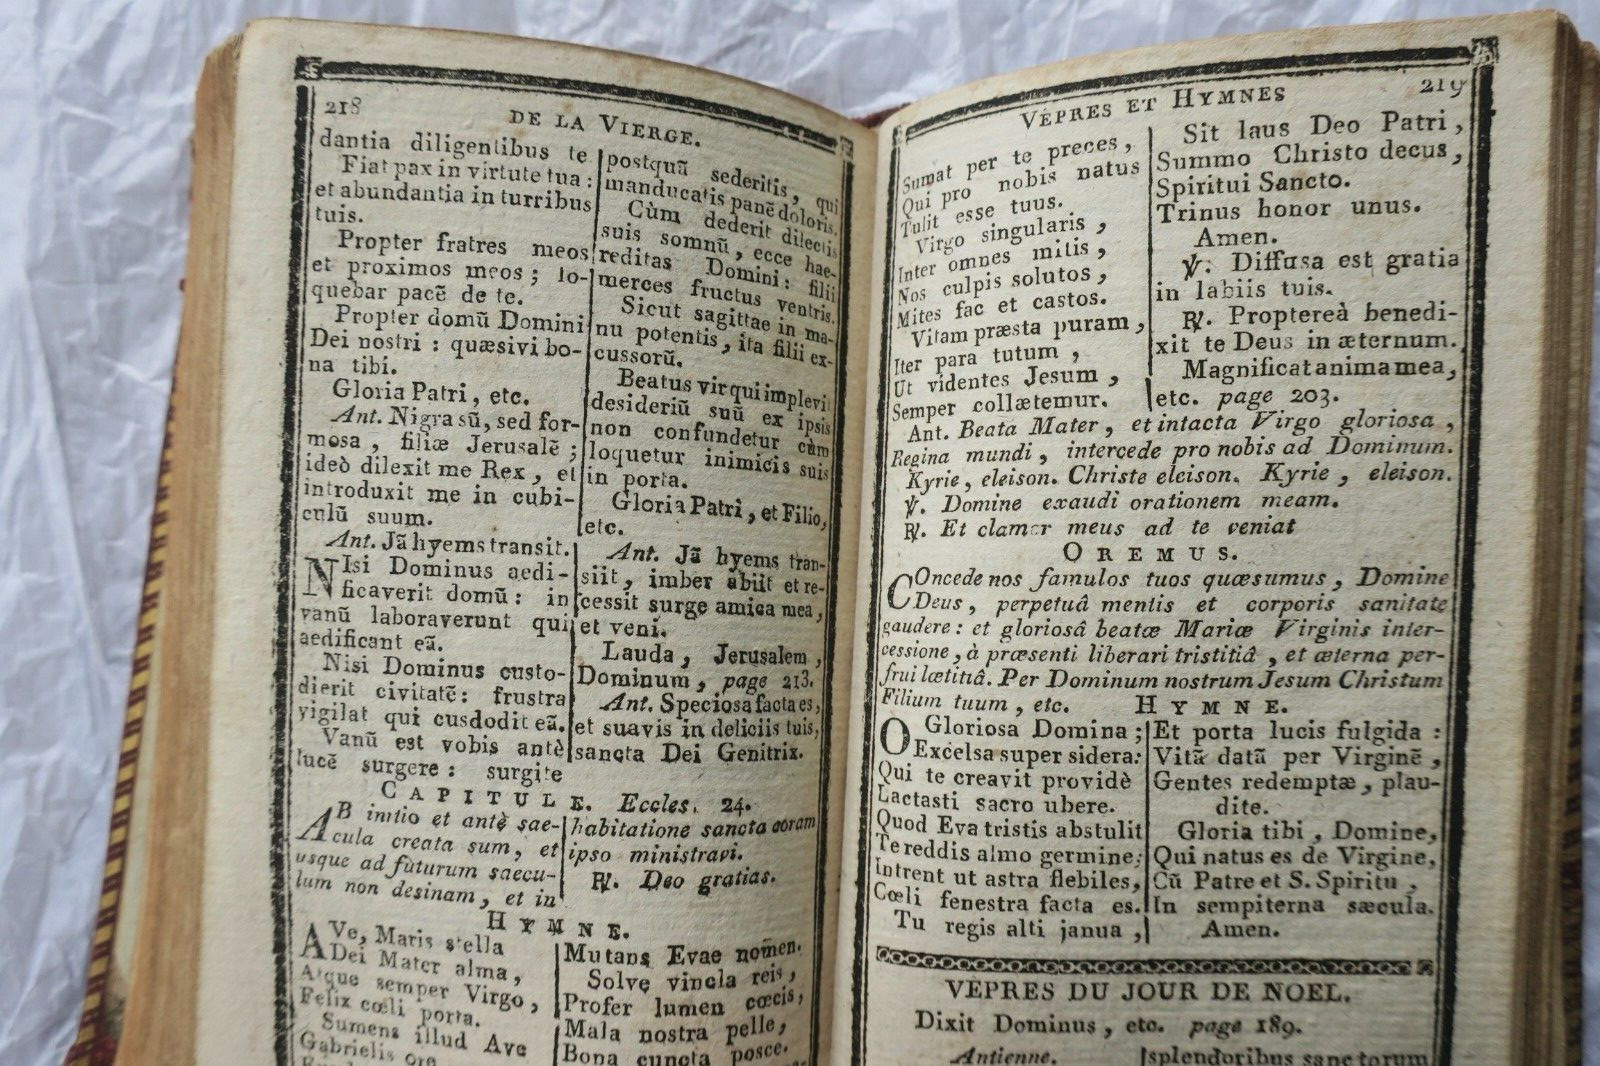 218
DE LA VIERGE.
dantia diligentibus te
Fiat pax in virtute tua :
et abundantia in turribus
tuis.
Propter fratres meos
et proximos meos ; lo-
quebar pacē de te.
Propter domū Domini
Dei nostri : quæsivi bo-
na tibi.
Gloria Patri, etc.
Ant. Nigra sū, sed for-
mosa, filiæ Jerusalē ;
ideò dilexit me Rex, et
introduxit me in cubi-
culū suum.
Ant. Jā hyems transit.
NIsi Dominus aedi-
ficaverit domū : in
vanū laboraverunt qui
aedificant eā.
Nisi Dominus custo-
dierit civitatē : frustra
vigilat qui cusdodit eā.
Vanū est vobis antè
lucē surgere : surgite
postquā sederitis, qui
manducatis panē doloris.
Cùm dederit dilectis
suis somnū, ecce hae-
reditas Domini : filii
merces fructus ventris.
Sicut sagittae in ma-
nu potentis, ita filii ex-
cussorū.
Beatus vir qui implevit
desideriū suū ex ipsis
non confundetur cùm
loquetur inimicis suis
in porta.
Gloria Patri, et Filio,
etc.
Ant. Jā hyems tran-
siit, imber abiit et re-
cessit surge amica mea,
et veni.
Lauda, Jerusalem,
Dominum, page 213.
Ant. Speciosa facta es,
et suavis in deliciis tuis,
sancta Dei Genitrix.
CAPITULE. Eccles. 24.
AB initio et antè sae-
cula creata sum, et
usque ad futurum saecu-
lum non desinam, et in
habitatione sancta coram
ipso ministravi.
℟. Deo gratias.
HYMNE.
AVe, Maris stella
Dei Mater alma,
Atque semper Virgo,
Felix cœli porta.
Sumens illud Ave
Gabrielis ore
Mutans Evae nomen.
Solve vincla reis,
Profer lumen cœcis,
Mala nostra pelle,
Bona cuncta posce.
VÊPRES ET HYMNES
219
Sumat per te preces,
Qui pro nobis natus
Tulit esse tuus.
Virgo singularis,
Inter omnes mitis,
Nos culpis solutos,
Mites fac et castos.
Vitam præsta puram,
Iter para tutum,
Ut videntes Jesum,
Semper collætemur.
Sit laus Deo Patri,
Summo Christo decus,
Spiritui Sancto.
Trinus honor unus.
Amen.
℣. Diffusa est gratia
in labiis tuis.
℟. Proptereà benedi-
xit te Deus in æternum.
Magnificat anima mea,
etc. page 203.
Ant. Beata Mater, et intacta Virgo gloriosa,
Regina mundi, intercede pro nobis ad Dominum.
Kyrie, eleison. Christe eleison. Kyrie, eleison.
℣. Domine exaudi orationem meam.
℟. Et clamor meus ad te veniat
OREMUS.
COncede nos famulos tuos quæsumus, Domine
Deus, perpetuâ mentis et corporis sanitate
gaudere : et gloriosâ beatæ Mariæ Virginis inter-
cessione, à præsenti liberari tristitiâ, et æterna per-
frui lætitiâ. Per Dominum nostrum Jesum Christum
Filium tuum, etc.
HYMNE.
O Gloriosa Domina ;
Excelsa super sidera :
Qui te creavit providè
Lactasti sacro ubere.
Quod Eva tristis abstulit
Te reddis almo germine ;
Intrent ut astra flebiles,
Cœli fenestra facta es.
Tu regis alti janua,
Et porta lucis fulgida :
Vitā datā per Virginē,
Gentes redemptæ, plau-
dite.
Gloria tibi, Domine,
Qui natus es de Virgine,
Cū Patre et S. Spiritu,
In sempiterna sæcula.
Amen.
VÊPRES DU JOUR DE NOEL.
Dixit Dominus, etc. page 189.
Antienne.
splendoribus sanctorum